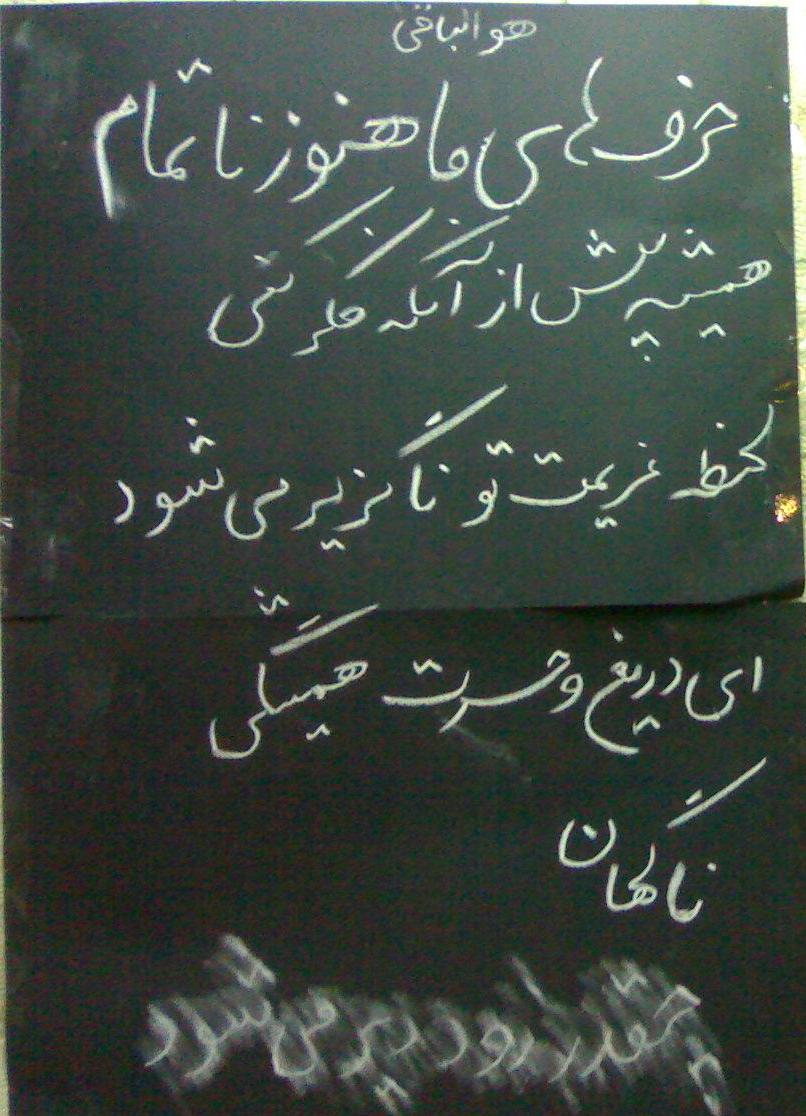 هو الباقی
حرف های ما هنوز ناتمام
همیشه پیش از آنکه فکر کنی
لحظه عزیمت تو ناگزیر می شود
ای دریغ و حسرت همیشگی
ناگهان
چقدر زود دیر می شود